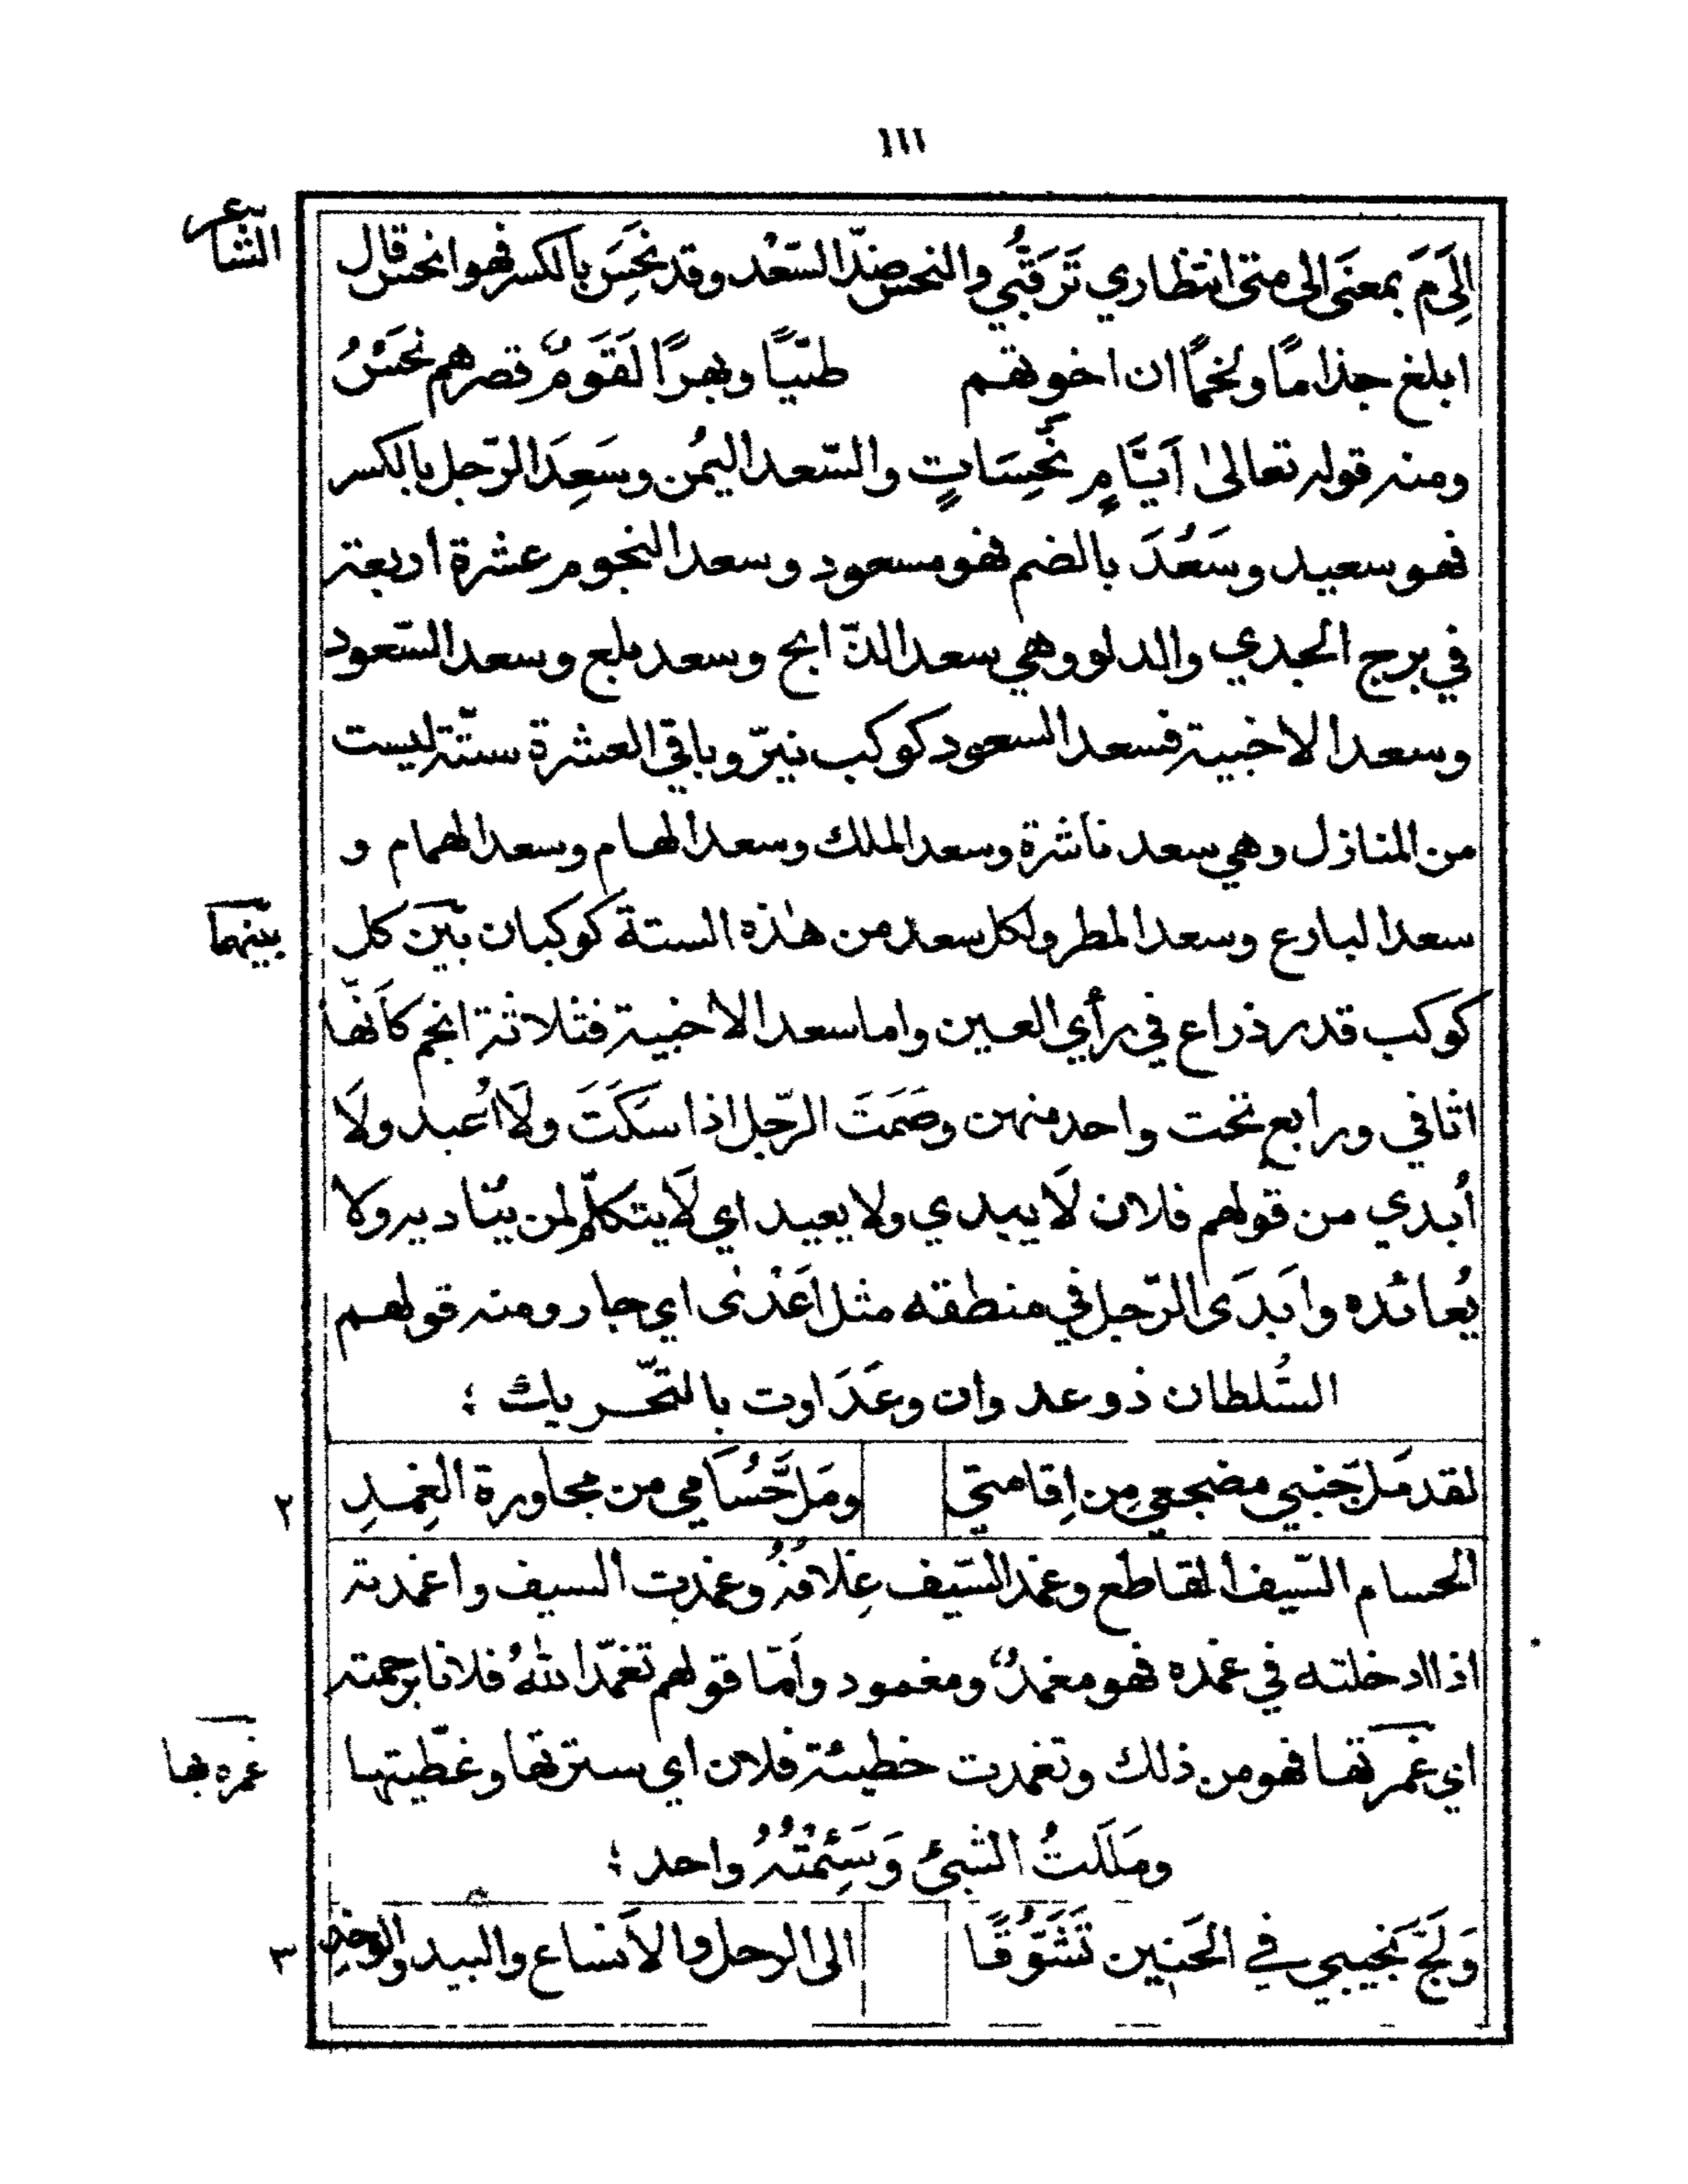 ١١١
إلى مَ بمعنَى الى متى انتظاري تَرَقُّبي والنحس ضدّ السّعْد وقد نَحِسَ بالكسر فهو انحس قال الشاعر
ابلغ جذامًا ولخمًا ان اخوتهم طيّبًا وبهرًا لَقَومٌ نصرهم نحَسُ
ومنه قوله تعالىٰ اَيَّامٍ نَحِسَاتٍ والسّعد اليُمن وسَعِدَ الرّجل بالكسر
فهو سعيد وسَعُدَ بالضم فهو مسعود وسعد النجوم عشرة اربعة
في برج الجدي والدلو وهي سعد الذّابح وسعد بلع وسعد السّعود
وسعد الاخبية فسعد السعود كوكب نيّر وباقي العشرة ستّة ليست
من المنازل وهي سعد ناشرة وسعد الملك وسعد الهام وسعد الهمام و
سعد البارع وسعد المطر ولكل سعد من هٰذه الستة كوكبان بين كل بينهما
كوكب قدر ذراع في رأي العين واما سعد الاخبية فثلاثة انجم كأنّها
اثافي ورابع تحت واحد منهن وصَمَتَ الرّجل اذا سَكَتَ ولَا اُعيد ولَا
اُبدي من قولهم فلان لَا يبدي ولا يعيد اي لَا يتكلّم لمن يناديه ولا
يُعائده واَبدَى الرّجل في منطقه مثل اَعْذىٰ اي جار ومنه قولهم
السُّلطان ذو عدوان وعَدَاوت بالتّحريك ؛
لقد مَلّ جنبي مضجعي مِن اِقامتي ومَلَّ حُسَامي من مجاورة الغِمدِ ٢
الحسام السّيف القاطع وغمد السّيف غِلافُهُ وغمدت السيف واغمدته
اذا ادخلته في غمده فهو مغمدٌ ومغمود وأمّا قولهم تغمّد اللهُ فلانا برحمته
اي غمرتها فهو من ذلك وتغمدت خطيئة فلان اي سترتها وغطّيتها غمره بها
ومَلَلتُ الشيئ وَسَئِمْتُهُ واحد ؛
وَلَجَّ نَجيبي في الحَنين تَشَوُّقًا الى الرحل والاَنساع والبيد والوخدِ ٣